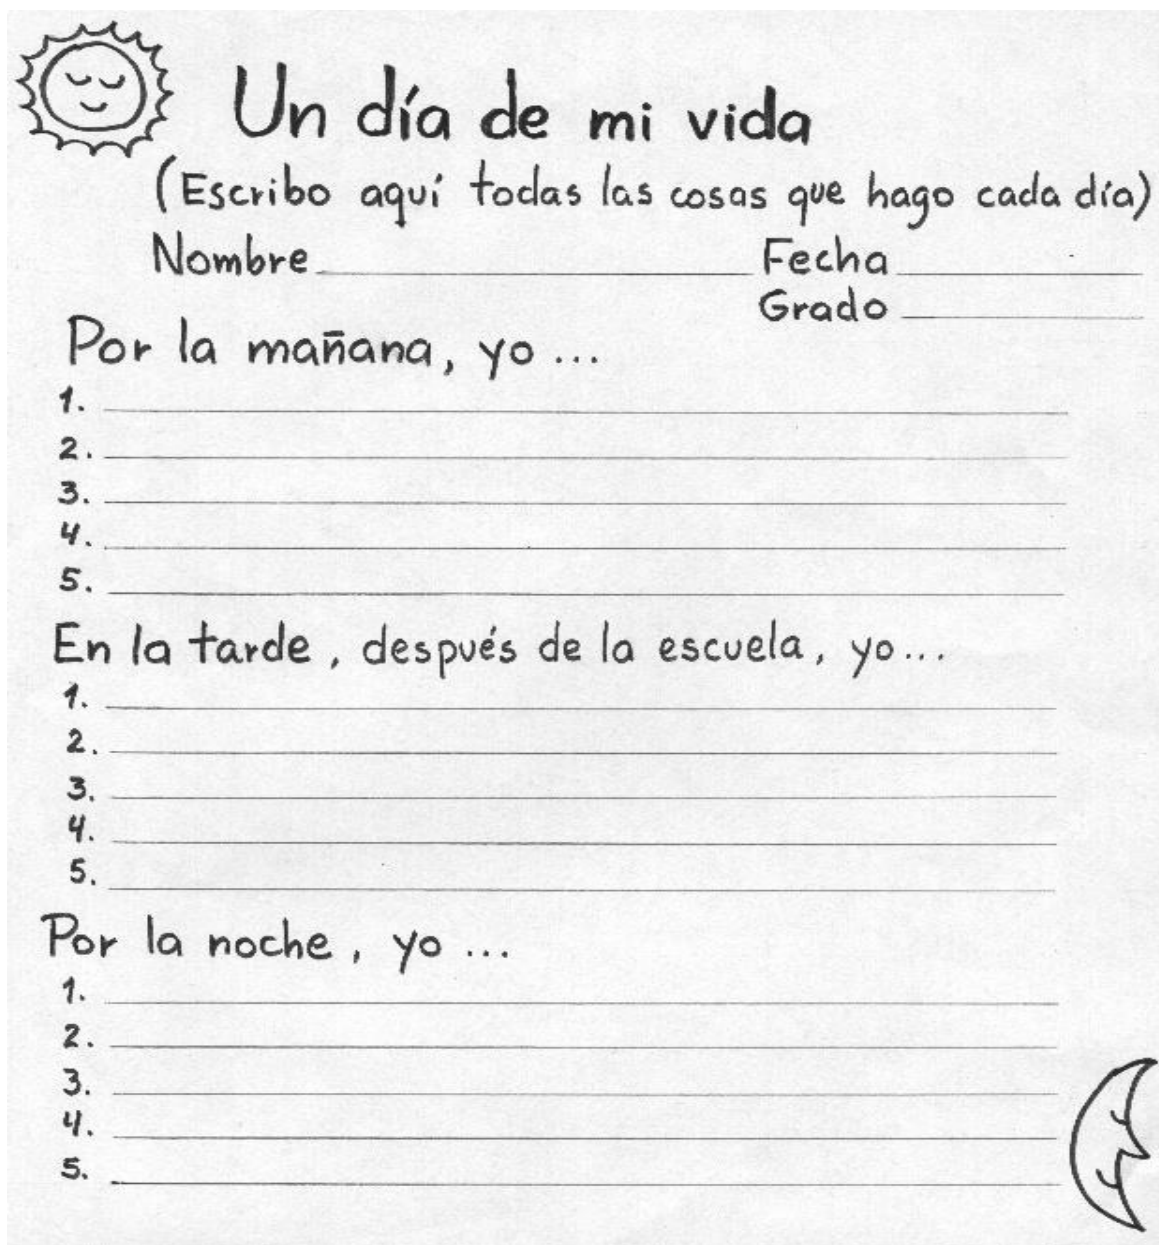 Un día de mi vida
(Escribo aquí todas las cosas que hago cada día)
Nombre Fecha
Grado
Por la mañana, yo ...
1.
2.
3.
4.
5.
En la tarde, después de la escuela, yo ...
1.
2.
3.
4.
5.
Por la noche, yo ...
1.
2.
3.
4.
5.